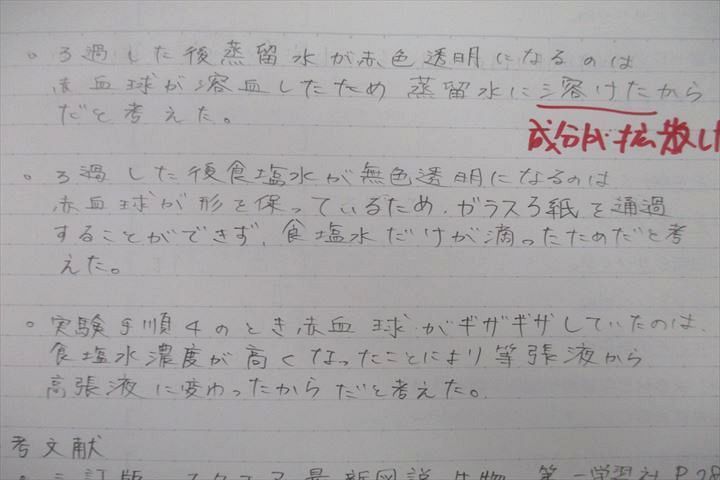 。ろ過した後蒸留水が赤色透明になるのは
赤血球が溶血したため 蒸留水に溶けたから
だと考えた。
成分が拡散した
。ろ過した後食塩水が無色透明になるのは
赤血球が形を保っているため、ガラスろ紙を通過
することができず、食塩水だけが滴ったためだと考
えた。
。実験手順4のとき赤血球がギザギザしていたのは、
食塩水濃度が高くなったことにより等張液から
高張液に変わったからだと考えた。
考文献
。三訂版 スクエア最新図説生物 第一学習社 P.28